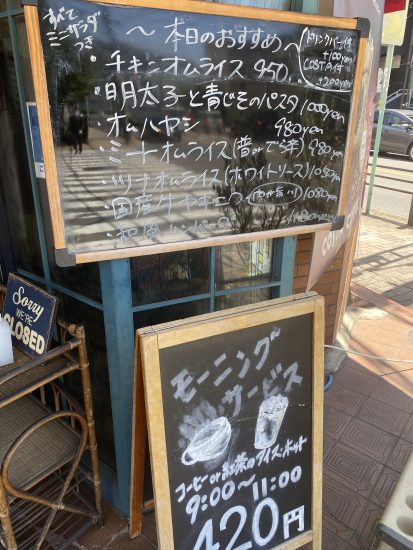 すべて
ミニサラダ
つき
〜本日のおすすめ〜
ドリンクバー付
+100yen
COSTA付
+200yen
・チキンオムライス 950
・明太子と青じそのパスタ 1000yen
・オムハヤシ 980yen
・ミートオムライス(普 or でら焼) 980yen
・ツナオムライス(ホワイトソース) 1050yen
・国産牛 1080yen
・和風ハンバーグ
Sorry
WE'RE
CLOSED
モーニング
サービス
コーヒー or お茶のアイス・ホット
9:00〜11:00
420円